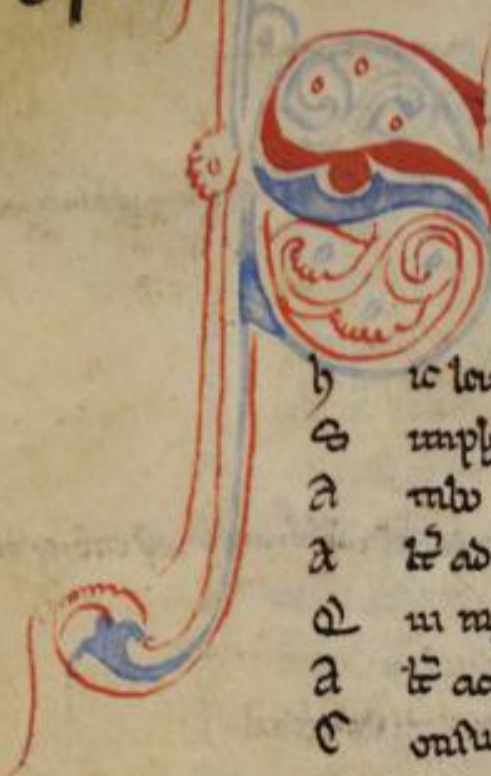 h ic leu
S impl
A mbo
A lt̃ ad
Q ui m
A lt̃ ad
C onsu